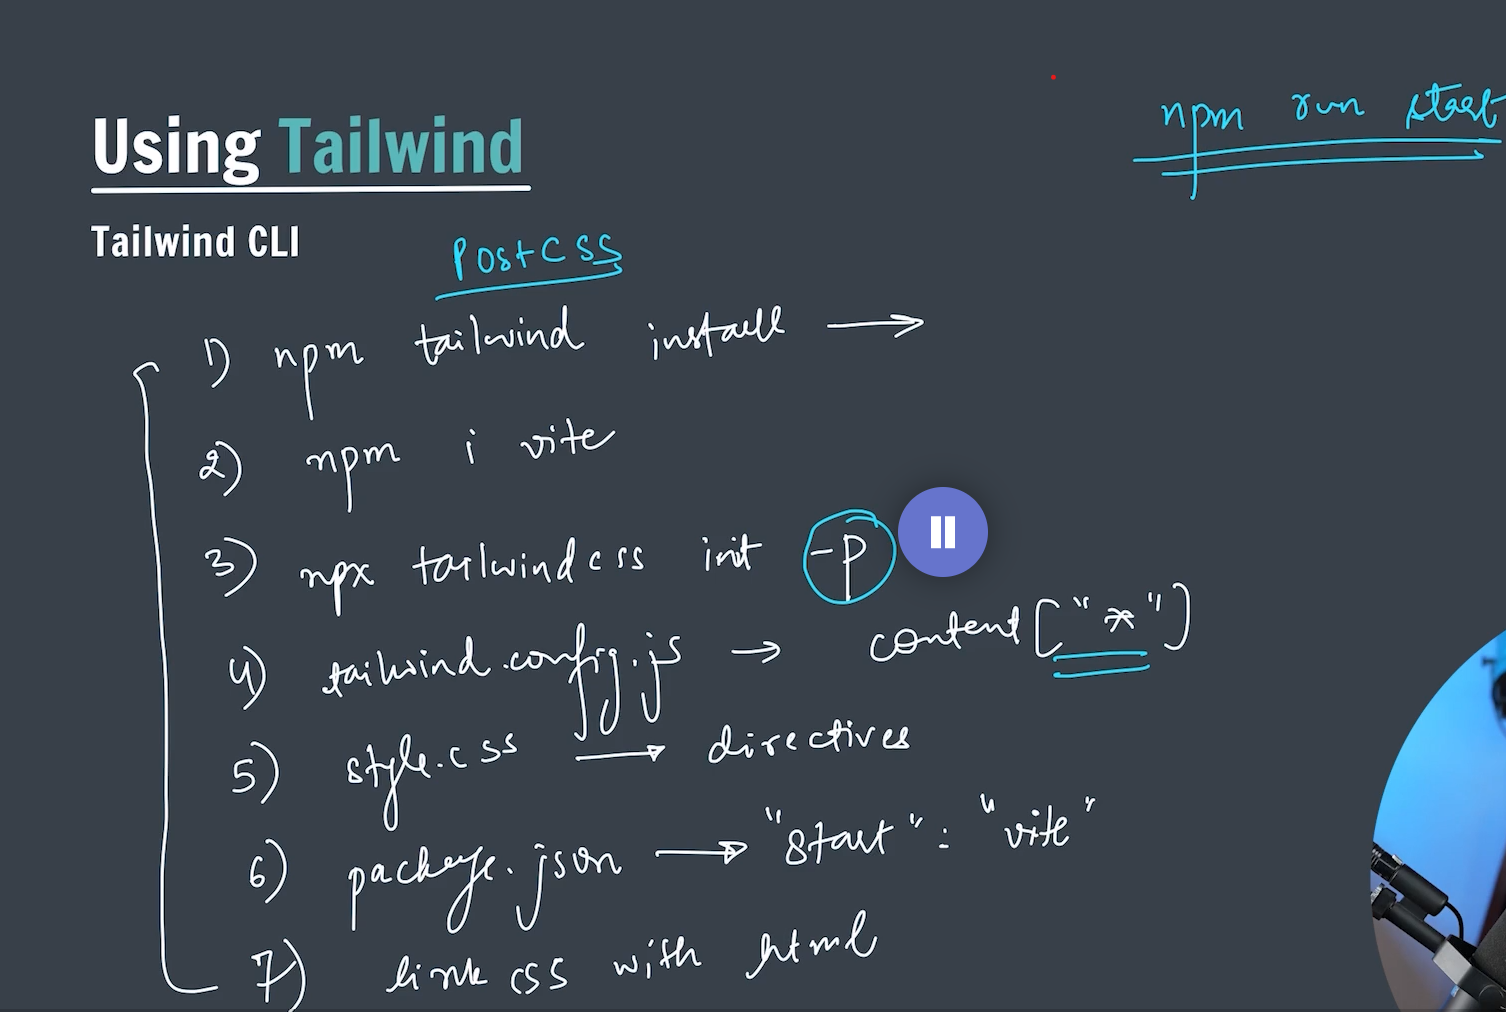 npm run start
Using Tailwind
Tailwind CLI
PostCSS
1) npm tailwind install →
2) npm i vite
3) npx tailwindcss init -p
4) tailwind.config.js → content["*"]
5) style.css → directives
6) package.json → "start" : "vite"
7) link css with html